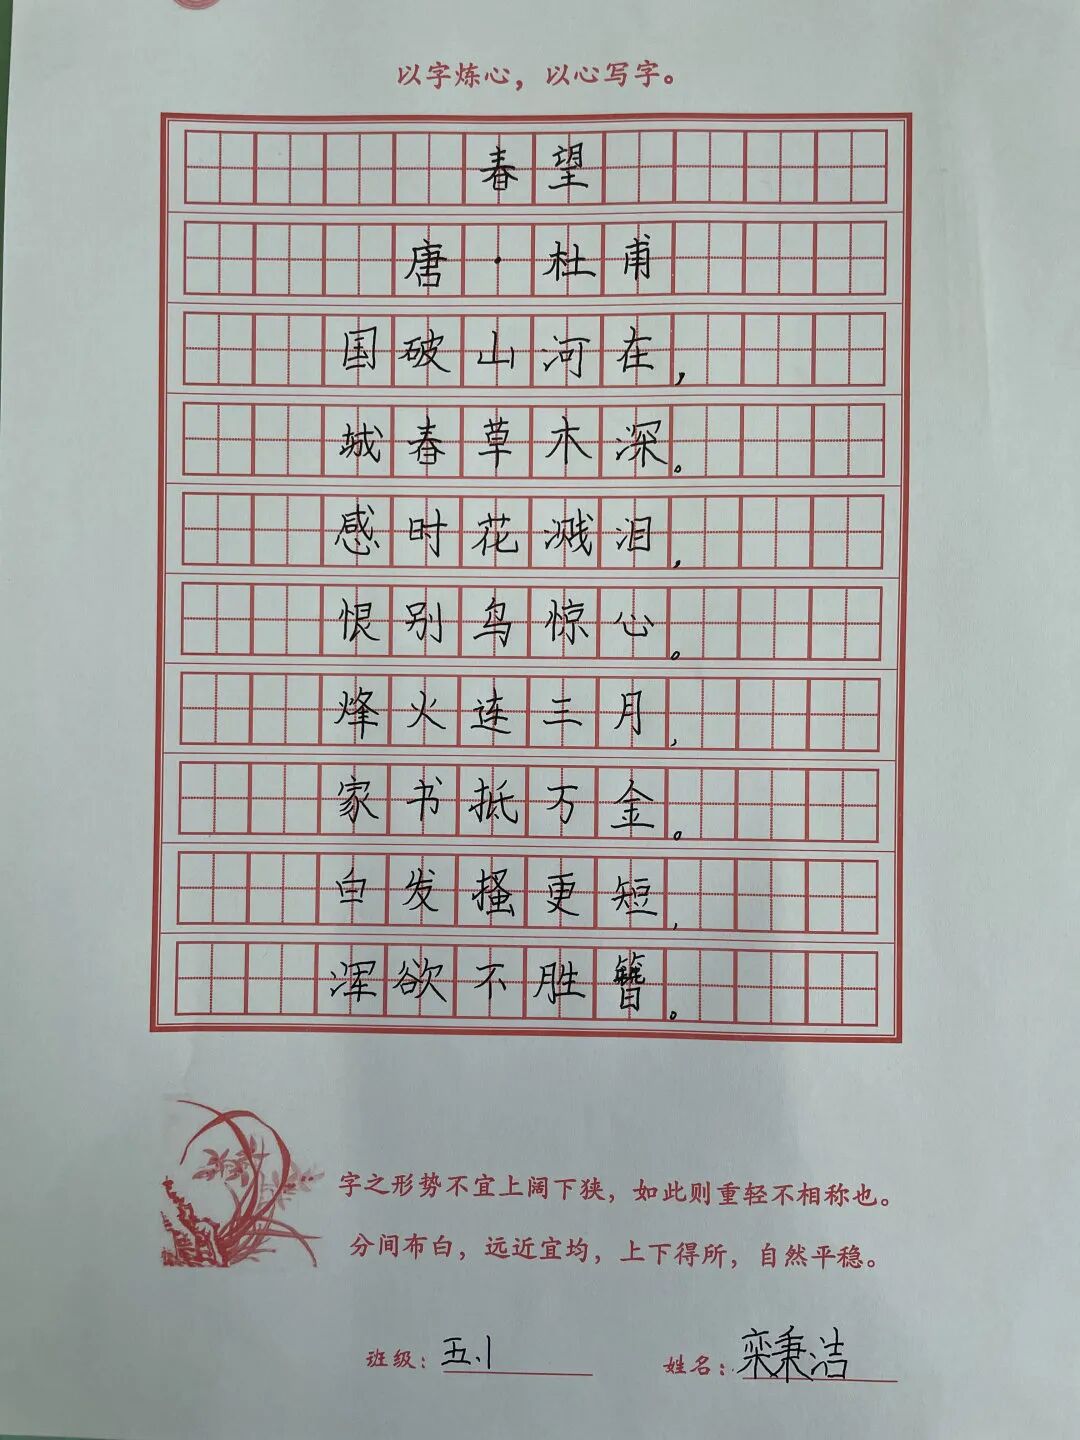 以字炼心，以心写字。
春望
唐·杜甫
国破山河在，
城春草木深。
感时花溅泪，
恨别鸟惊心。
烽火连三月，
家书抵万金。
白发搔更短，
浑欲不胜簪。
字之形势不宜上阔下狭，如此则重轻不相称也。
分间布白，远近宜均，上下得所，自然平稳。
班级：五.1 姓名：栾秉洁